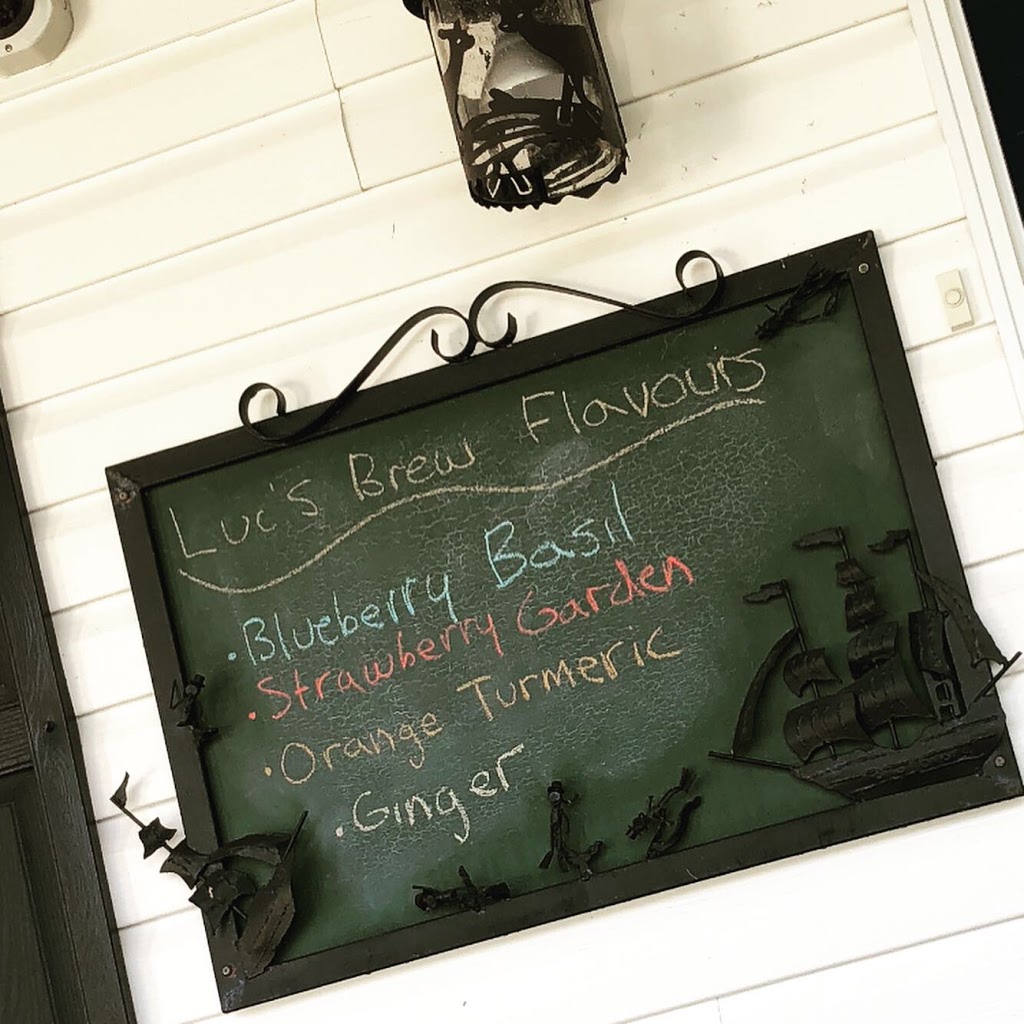 Luc's Brew Flavours
• Blueberry Basil
• Strawberry Garden
• Orange Turmeric
• Ginger